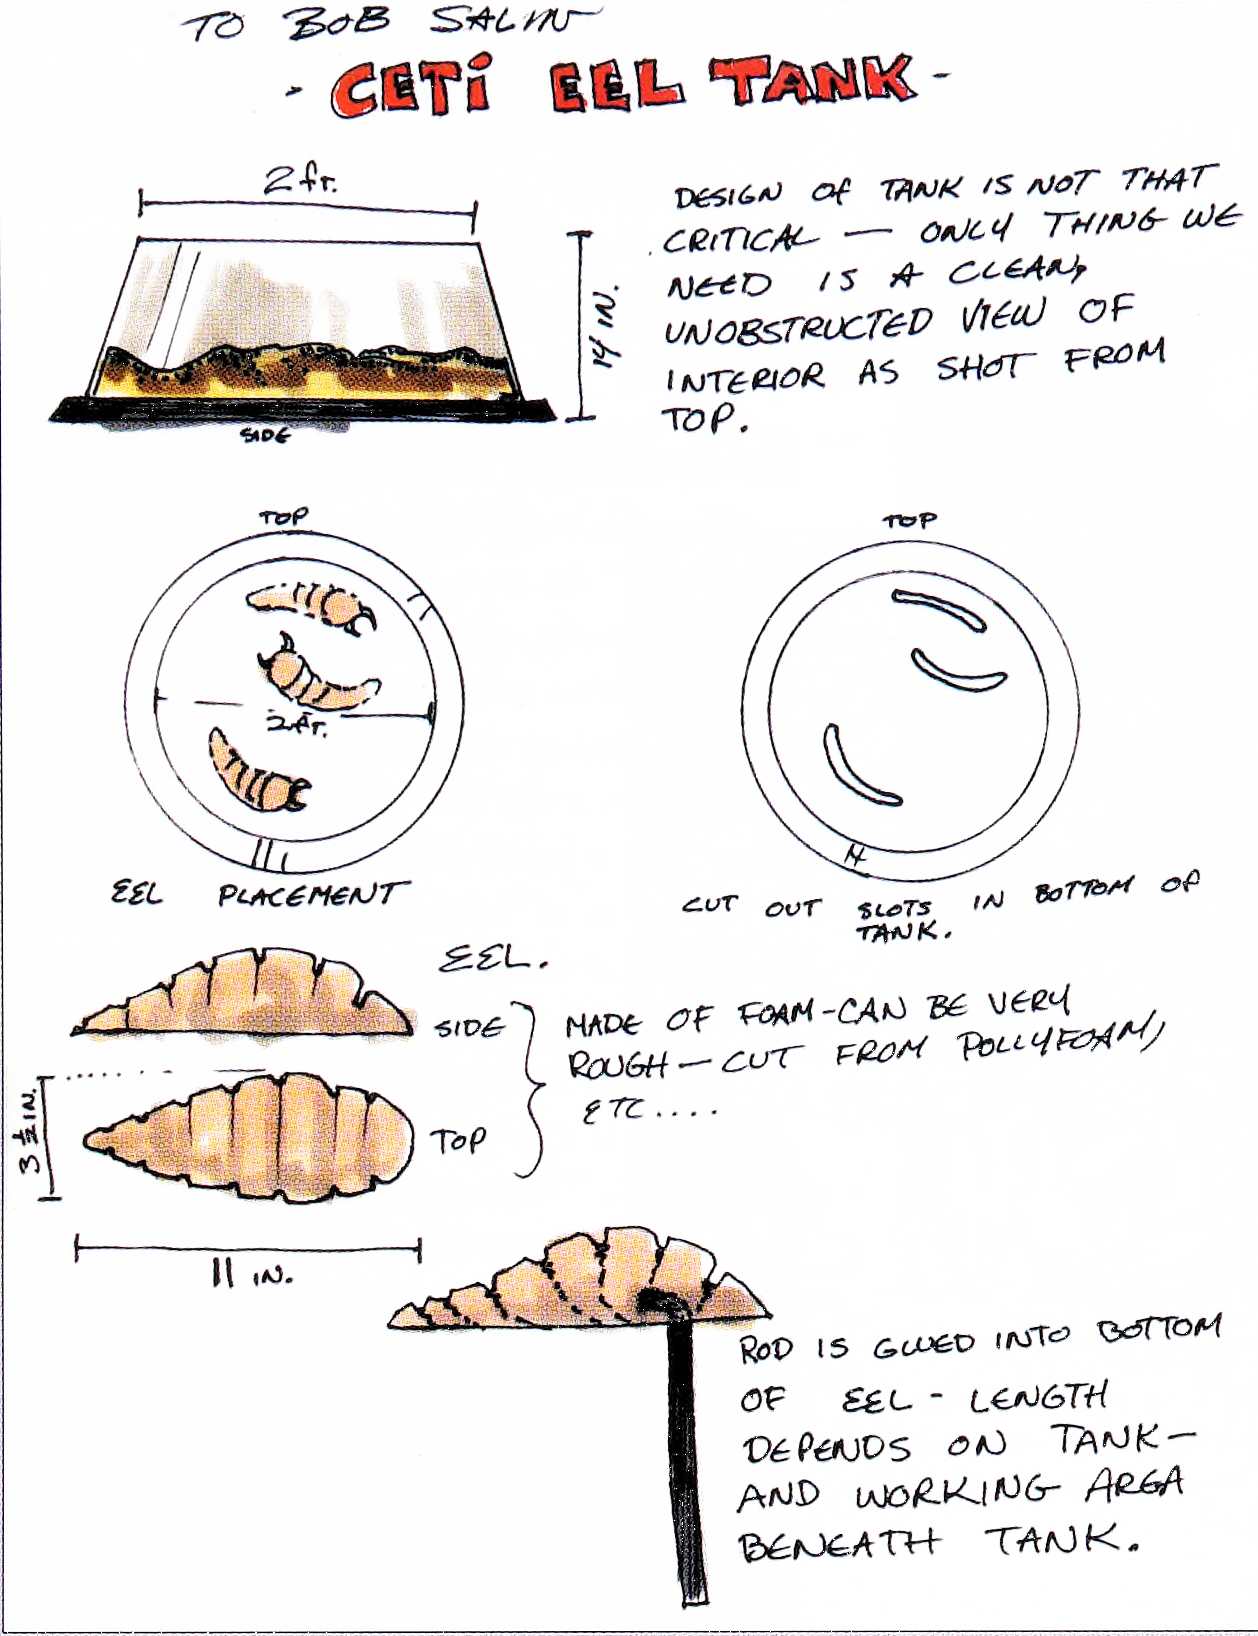 TO BOB SALIN
- CETI EEL TANK -
2 ft.
14 IN.
SIDE
DESIGN Of TANK IS NOT THAT
CRITICAL — ONLY THING WE
NEED IS A CLEAN,
UNOBSTRUCTED VIEW OF
INTERIOR AS SHOT FROM
TOP.
TOP
2 Ft.
EEL PLACEMENT
TOP
CUT OUT SLOTS IN BOTTOM OF
TANK.
EEL.
SIDE
3 1/2 IN.
TOP
11 IN.
MADE OF FOAM-CAN BE VERY
ROUGH — CUT FROM POLLYFOAM,
ETC....
ROD IS GLUED INTO BOTTOM
OF EEL - LENGTH
DEPENDS ON TANK —
AND WORKING AREA
BENEATH TANK.